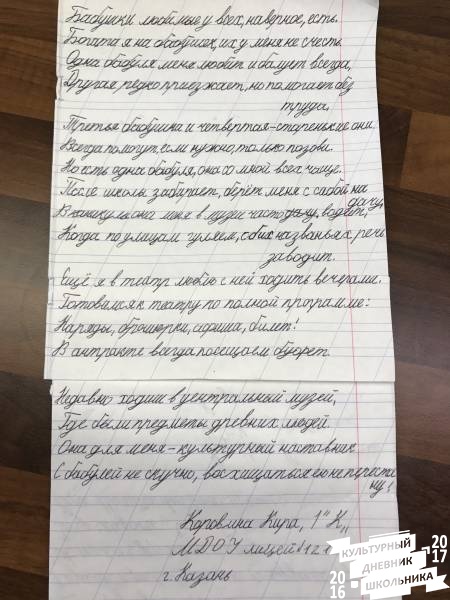 Бабушки любимые у всех, наверное, есть.
Богата я на бабушек, их у меня не счесть.
Одна бабуля меня любит и балует всегда,
Другая редко приезжает, но помогает без
труда,
Третья бабушка и четвертая-старенькие они.
Всегда помогут, если нужно, только позови.
Но есть одна бабуля, она со мной всех чаще.
После школы забирает, берёт меня с собой на
дачу,
В каникулы она меня в музеи часто водит,
Когда по улицам гуляем, об их названьях речи
заводит.
Ещё я в театр люблю с ней ходить вечерами.
Готовимся к театру по полной программе:
Наряды, брошюрки, афиша, билет!
В антракте всегда посещаем буфет.
Недавно ходили в центральный музей,
Где были предметы древних людей.
Она для меня-культурный наставник
С бабулей не скучно, восхищаться ею не переста
ну!
Коровина Кира, 1 "К"
МДОУ лицей №121
г. Казань
КУЛЬТУРНЫЙ
ДНЕВНИК
ШКОЛЬНИКА
2016
2017